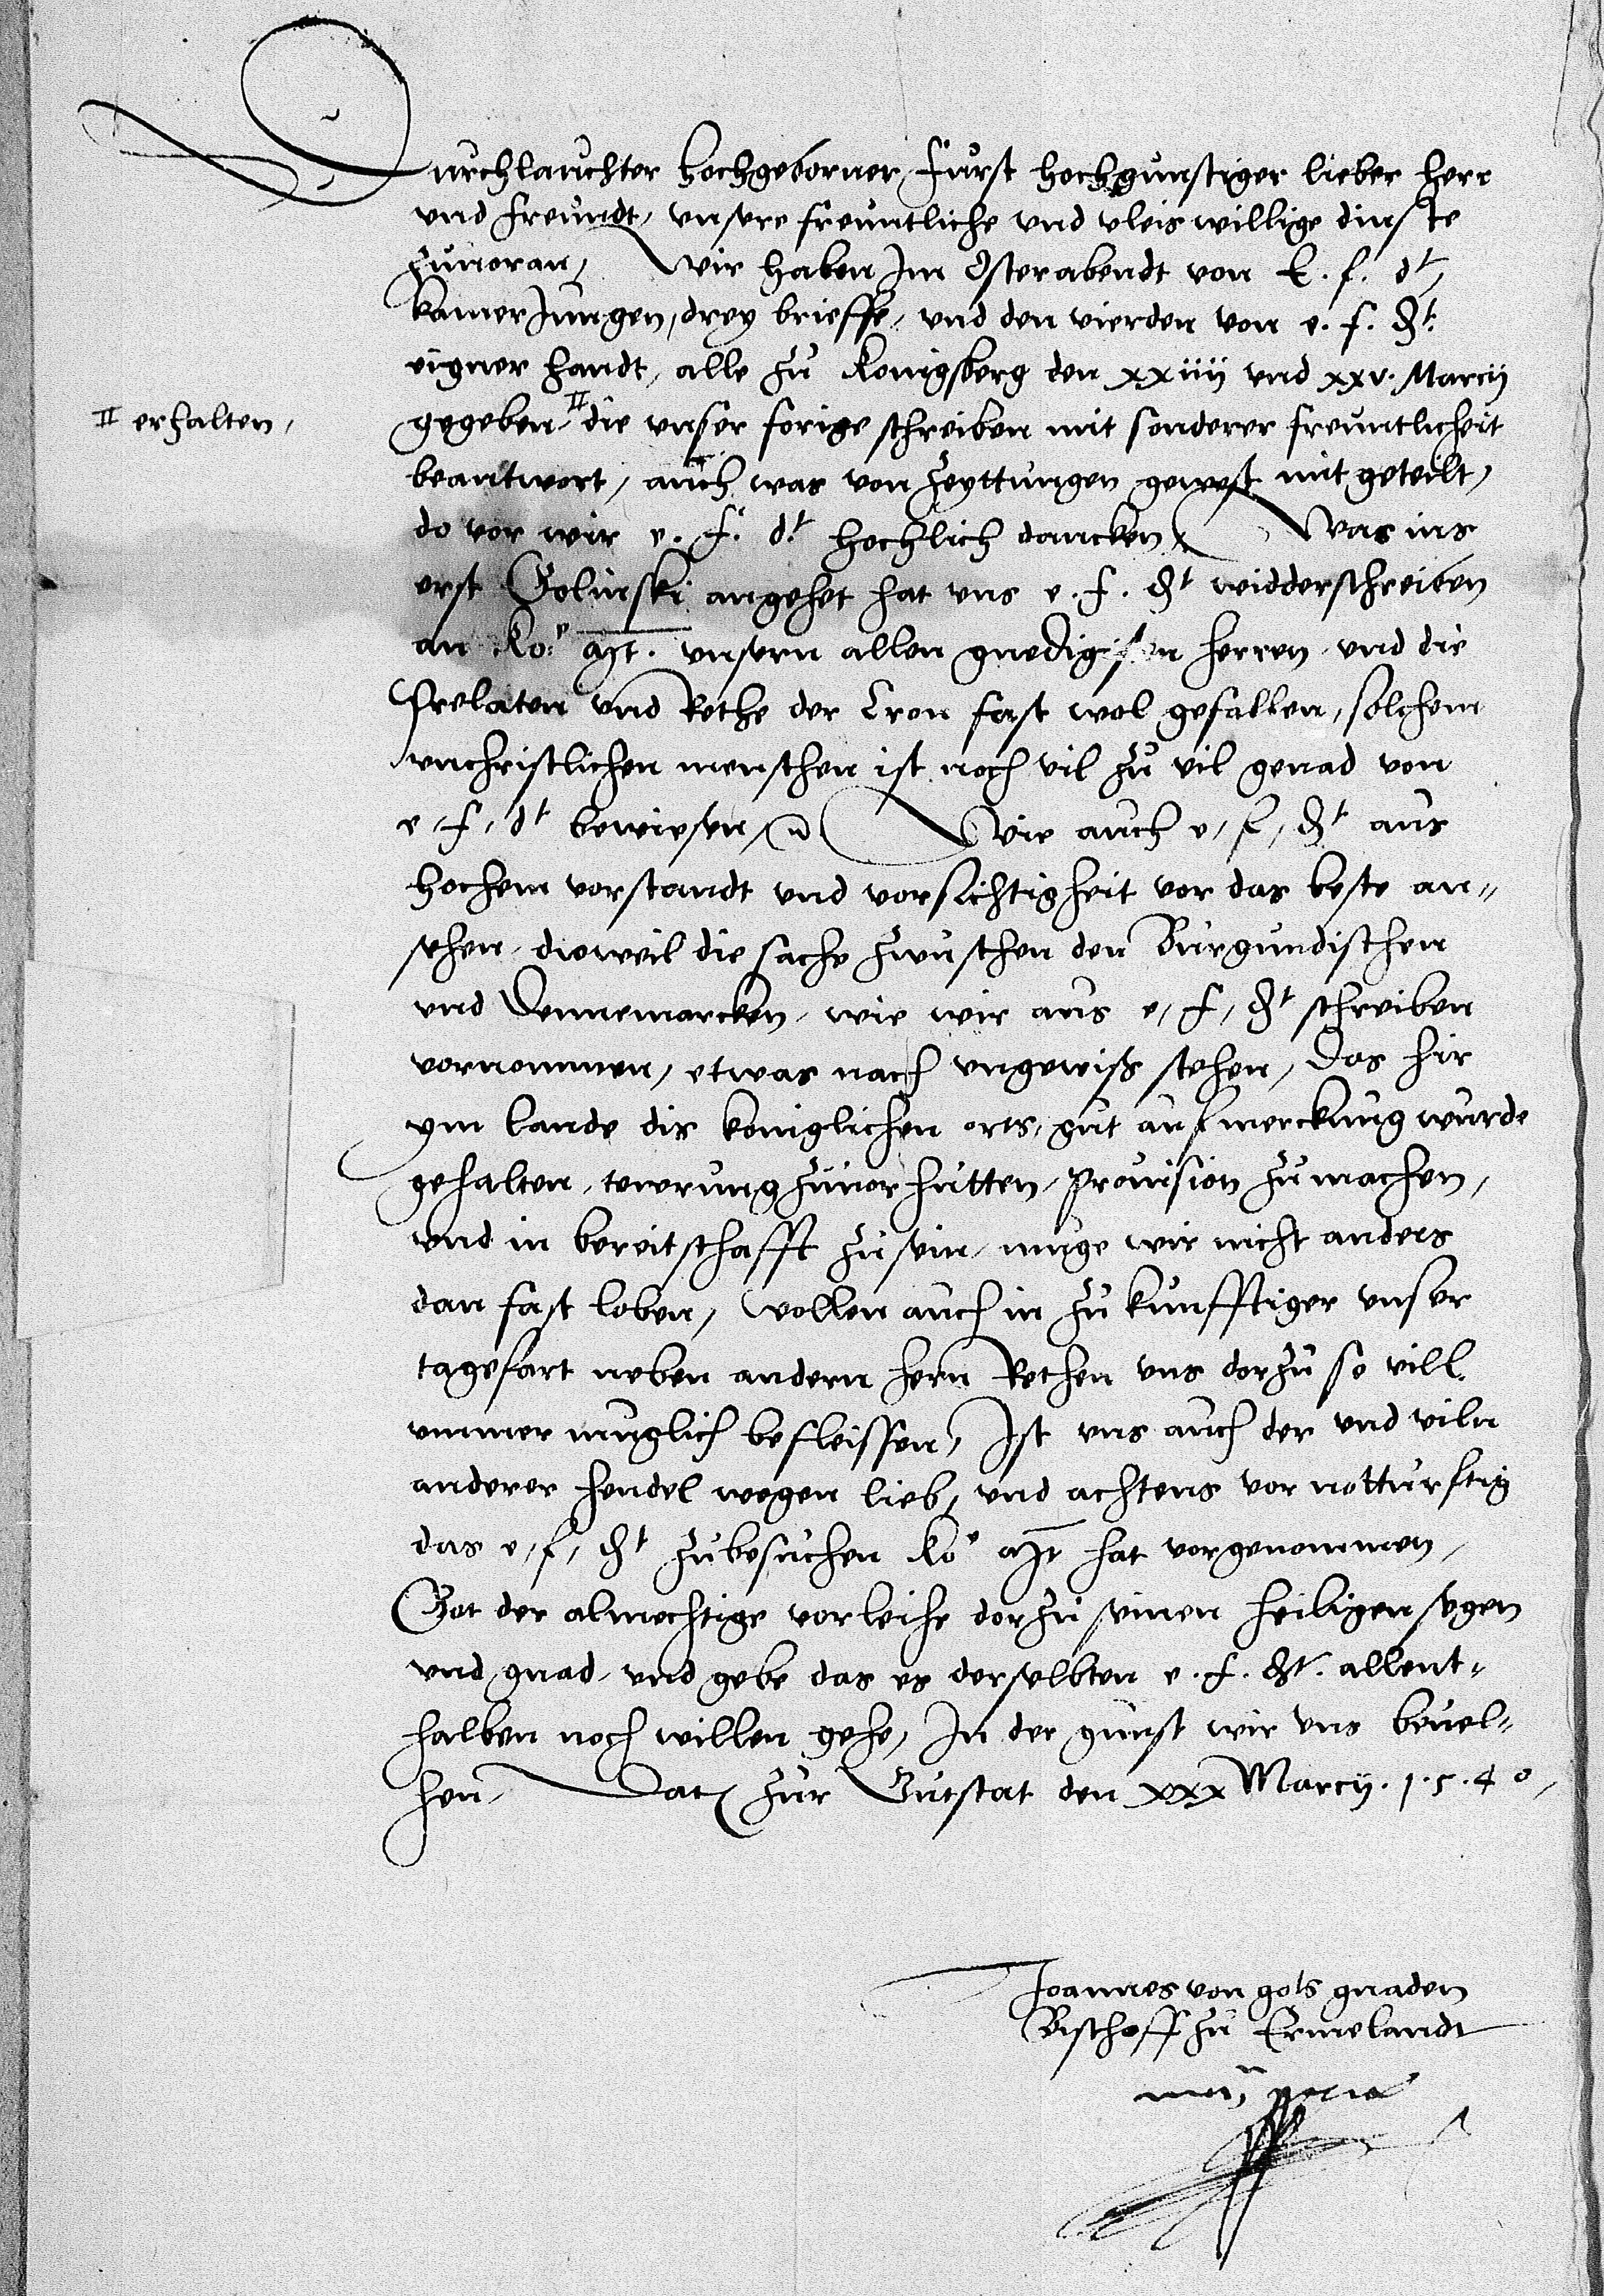 Durchlauchter hochgeborner furst hochgunstiger lieber herr
und freundt, unsere freuntliche und vleis willige dinste
zuuoran, Wir haben Im Osterabendt von E. f. dt,
kamer Jungen, drey brieffe, und den vierden von e. f. dt.
eigner handt, alle zu Konigsberg den xxiiii und xxv. Marcij
II erhalten,
gegeben, II die unser forige schreiben mit sonderer freuntlicheit
beantwort, auch was von zeyttungen gewest mit geteilt,
do vor wir e. f. dt. hochlich dancken, Was ins
erst Golinski angehet hat uns e. f. dt widderschreiben
an Ko.e Mt. unsern allen gnedigisten herren, und die
Prelaten und Rethe der Cron fast wol gefallen, solchem
unchristlichen menschen ist noch vil zu vil genad von
e, f, dt bewiesen, Wie auch e, f, dt aus
hochem vorstandt und vorsichtigheit vor das beste an-
sehen, dieweil die sache zwuschen den Burgundischen
und Dennemarcken, wie wir aus e, f, dt schreiben
vornommen, etwas nach ungewiss stehen, Das hir
ym lande dis koniglichen orts, gut aufmerckung wurde
gehalten, tewrung zuuorhutten, prouision zu machen,
und in bereitschafft zu sein, muge wir nicht anders
dan fast loben, wollen auch in zukunfftiger unser
tagefart neben andern hern Rethen uns dorzu so vill
ummer muglich befleissen, Ist uns auch der und viln
anderer hendel wegen lieb, und achtens vor notturftig
das e, f, dt zubesuchen Koe Mt hat vorgenommen,
Got der almechtige vorleihe dorzu seinen heiligen segen
und gnad, und gebe das es derselbten e. f. dt. allent-
halben noch willen gehe, In der gunst wir uns beuel-
hen, Dat zur Gutstat den xxx Marcij. 1.5.40,
Joannes von gots gnaden
Bischoff zu Ermelandt